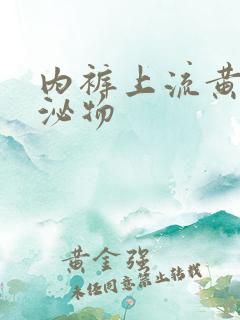 内裤上流黄
泌物
黄金强
未经同意禁止转载